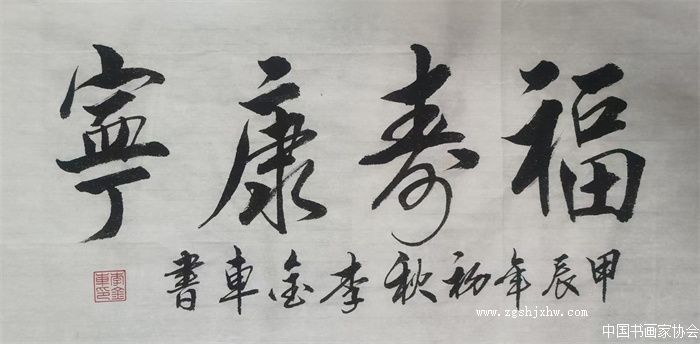 福寿康寧
甲辰年初秋李金車書
李金車印
www.zgshjxhw.com
中国书画家协会